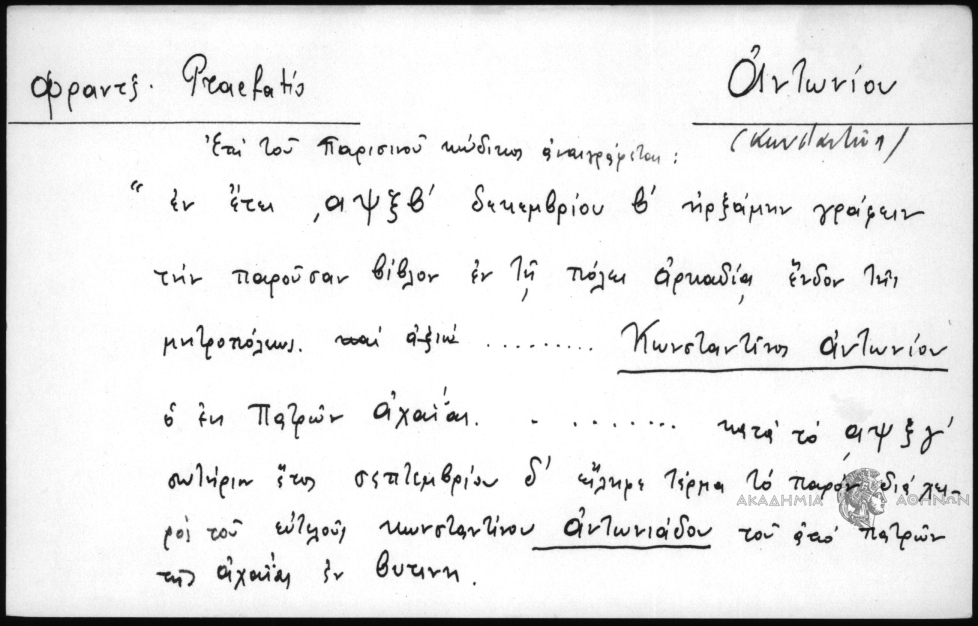 Φραντζ. Praefatio Ἀντωνίου
(Κωνσταντῖν)
Ἐπὶ τοῦ Παρισινοῦ κώδικος ἀναγράφεται:
“ ἐν ἔτει ͵αψξβ' δεκεμβρίου β' ἠρξάμην γράφειν
τὴν παροῦσαν βίβλον ἐν τῇ πόλει ἀρκαδίᾳ ἔνδον τῆς
μητροπόλεως. καὶ ἀξιῶ .......... Κωνσταντῖνος ἀντωνίου
ὁ ἐκ Πατρῶν ἀχαΐας. . ........ κατὰ τὸ ͵αψξγ'
σωτήριον ἔτος σεπτεμβρίου δ' εἴληφε τέρμα τὸ παρὸν διὰ χει-
ρὸς τοῦ εὐτελοῦς κωνσταντίνου ἀντωνιάδου τοῦ ἀπὸ πατρῶν
τῆς ἀχαΐας ἐν βυτινη.
ΑΚΑΔΗΜΙΑ ΑΘΗΝΩΝ